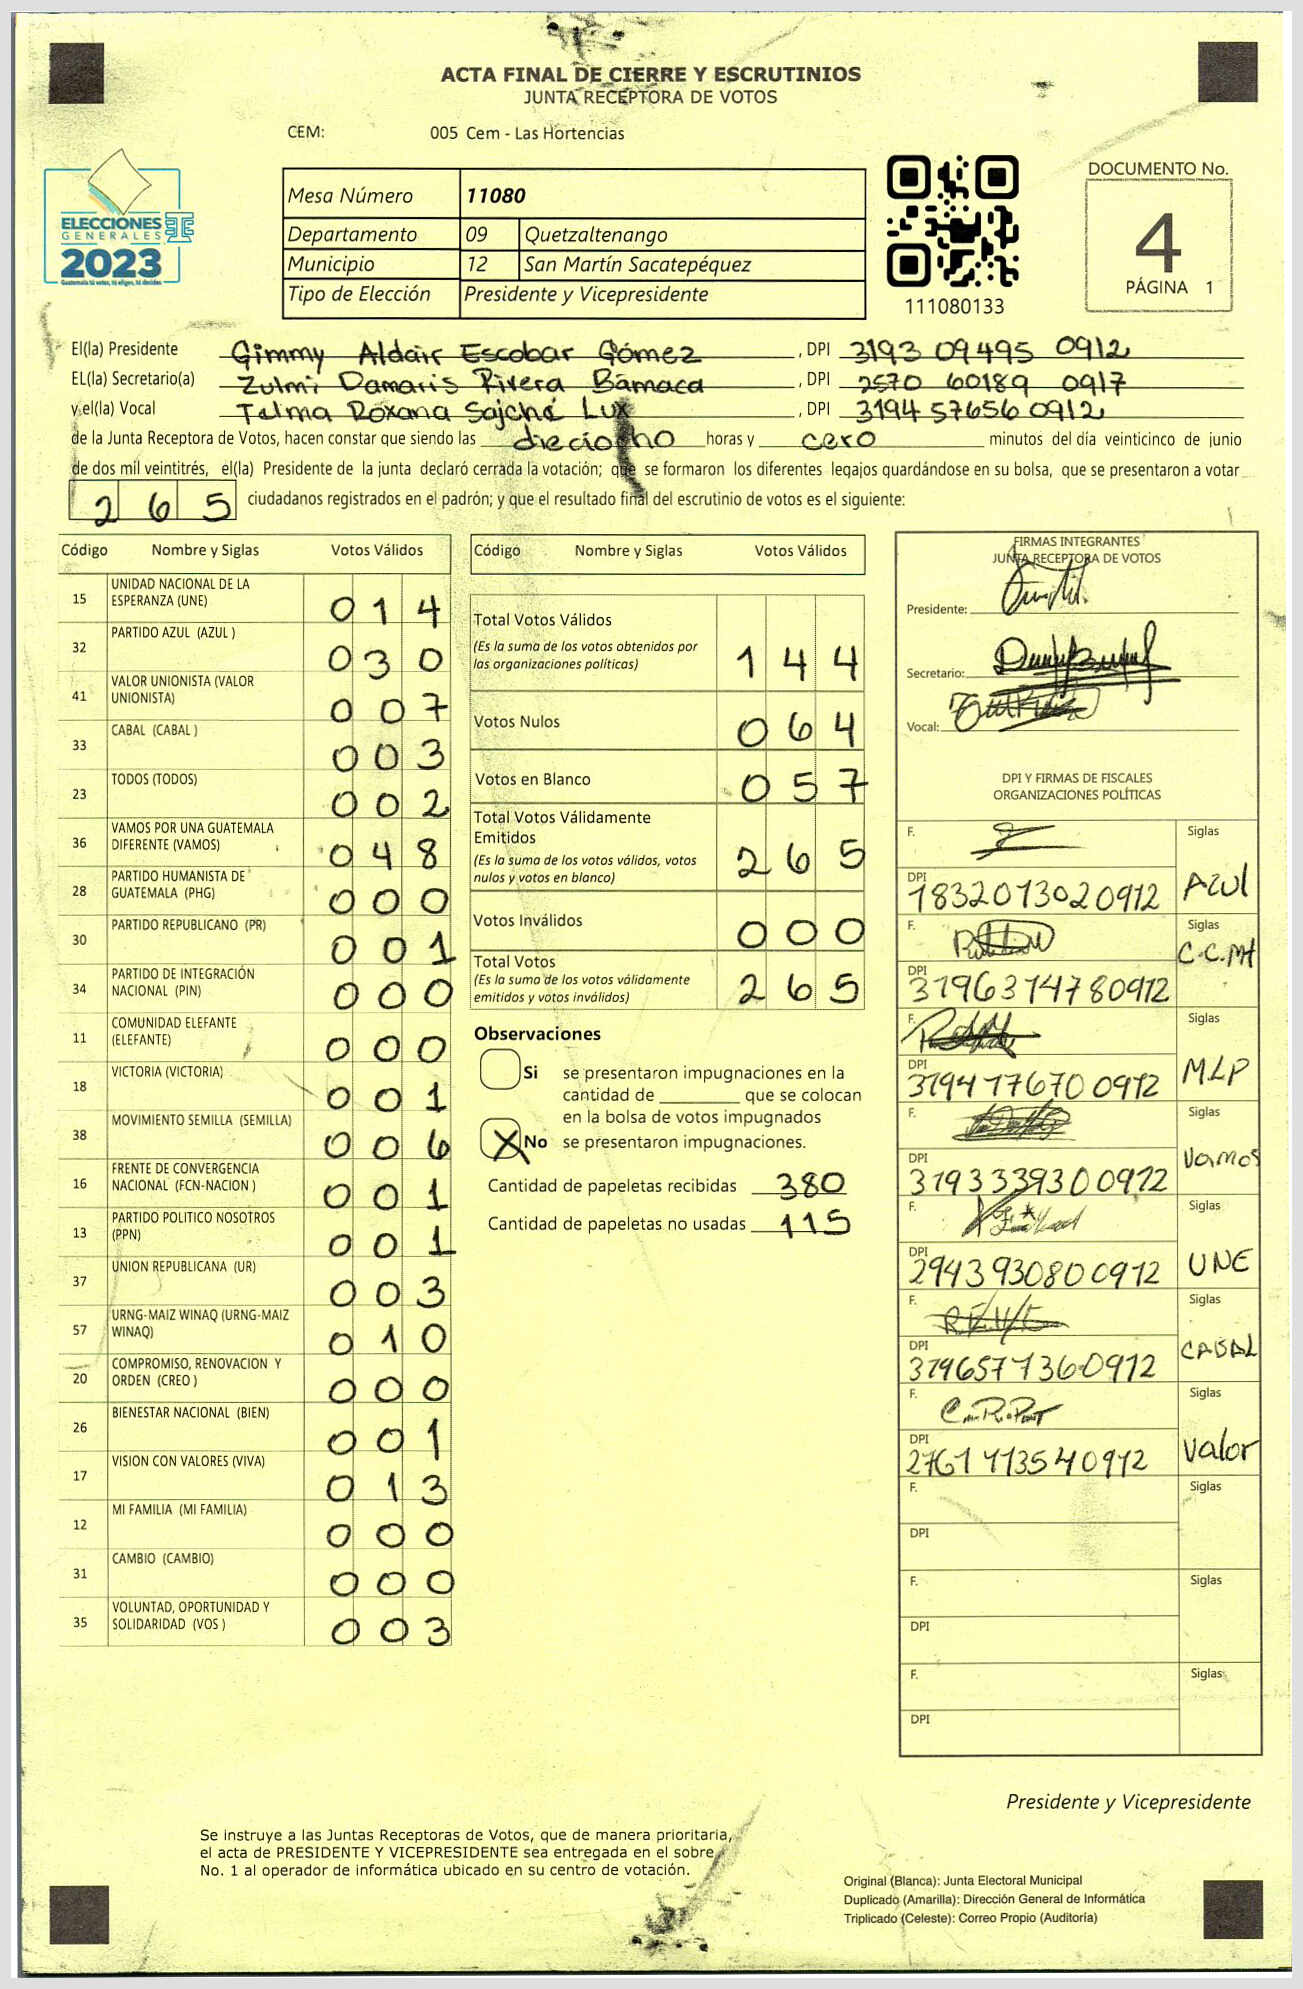 ACTA FINAL DE CIERRE Y ESCRUTINIOS
JUNTA RECEPTORA DE VOTOS
CEM: 005 Cem - Las Hortencias
ELECCIONES
GENERALES
2023
Guatemala tú votas, tú eliges, tú decides
Mesa Número 11080
Departamento 09 Quetzaltenango
Municipio 12 San Martín Sacatepéquez
Tipo de Elección Presidente y Vicepresidente
111080133
DOCUMENTO No.
4
PÁGINA 1
El(la) Presidente Gimmy Aldair Escobar Gómez, DPI 3193 09495 0912
EL(la) Secretario(a) Zulmi Damaris Rivera Bámaca, DPI 2570 60189 0917
y el(la) Vocal Telma Roxana Sajché Lux, DPI 3194 57656 0912
de la Junta Receptora de Votos, hacen constar que siendo las dieciocho horas y cero minutos del día veinticinco de junio
de dos mil veintitrés, el(la) Presidente de la junta declaró cerrada la votación; que se formaron los diferentes legajos guardándose en su bolsa, que se presentaron a votar
265 ciudadanos registrados en el padrón; y que el resultado final del escrutinio de votos es el siguiente:
Código Nombre y Siglas Votos Válidos
15 UNIDAD NACIONAL DE LA ESPERANZA (UNE) 014
32 PARTIDO AZUL (AZUL ) 030
41 VALOR UNIONISTA (VALOR UNIONISTA) 007
33 CABAL (CABAL ) 003
23 TODOS (TODOS) 002
36 VAMOS POR UNA GUATEMALA DIFERENTE (VAMOS) 048
28 PARTIDO HUMANISTA DE GUATEMALA (PHG) 000
30 PARTIDO REPUBLICANO (PR) 001
34 PARTIDO DE INTEGRACIÓN NACIONAL (PIN) 000
11 COMUNIDAD ELEFANTE (ELEFANTE) 000
18 VICTORIA (VICTORIA) 001
38 MOVIMIENTO SEMILLA (SEMILLA) 006
16 FRENTE DE CONVERGENCIA NACIONAL (FCN-NACION ) 001
13 PARTIDO POLITICO NOSOTROS (PPN) 001
37 UNION REPUBLICANA (UR) 003
57 URNG-MAIZ WINAQ (URNG-MAIZ WINAQ) 010
20 COMPROMISO, RENOVACION Y ORDEN (CREO ) 000
26 BIENESTAR NACIONAL (BIEN) 001
17 VISION CON VALORES (VIVA) 013
12 MI FAMILIA (MI FAMILIA) 000
31 CAMBIO (CAMBIO) 000
35 VOLUNTAD, OPORTUNIDAD Y SOLIDARIDAD (VOS ) 003
Código Nombre y Siglas Votos Válidos
Total Votos Válidos 144
(Es la suma de los votos obtenidos por
las organizaciones políticas)
Votos Nulos 064
Votos en Blanco 057
Total Votos Válidamente
Emitidos 265
(Es la suma de los votos válidos, votos
nulos y votos en blanco)
Votos Inválidos 000
Total Votos 265
(Es la suma de los votos válidamente
emitidos y votos inválidos)
Observaciones
Si se presentaron impugnaciones en la
cantidad de ________ que se colocan
en la bolsa de votos impugnados
X No se presentaron impugnaciones.
Cantidad de papeletas recibidas 380
Cantidad de papeletas no usadas 115
FIRMAS INTEGRANTES
JUNTA RECEPTORA DE VOTOS
Presidente:
Secretario:
Vocal:
DPI Y FIRMAS DE FISCALES
ORGANIZACIONES POLÍTICAS
F. Siglas
DPI 1832013020912 AZUl
F. Siglas
DPI 3196314780912 C.C.MH
F. Siglas
DPI 3194177670 0912 MLP
F. Siglas
DPI 3193339300912 Vamos
F. Siglas
DPI 2943930800912 UNE
F. Siglas
DPI 3196577360912 CABAL
F. Siglas
DPI 2761113540912 Valor
F. Siglas
DPI
F. Siglas
DPI
F. Siglas
DPI
Presidente y Vicepresidente
Se instruye a las Juntas Receptoras de Votos, que de manera prioritaria,
el acta de PRESIDENTE Y VICEPRESIDENTE sea entregada en el sobre
No. 1 al operador de informática ubicado en su centro de votación.
Original (Blanca): Junta Electoral Municipal
Duplicado (Amarilla): Dirección General de Informática
Triplicado (Celeste): Correo Propio (Auditoría)